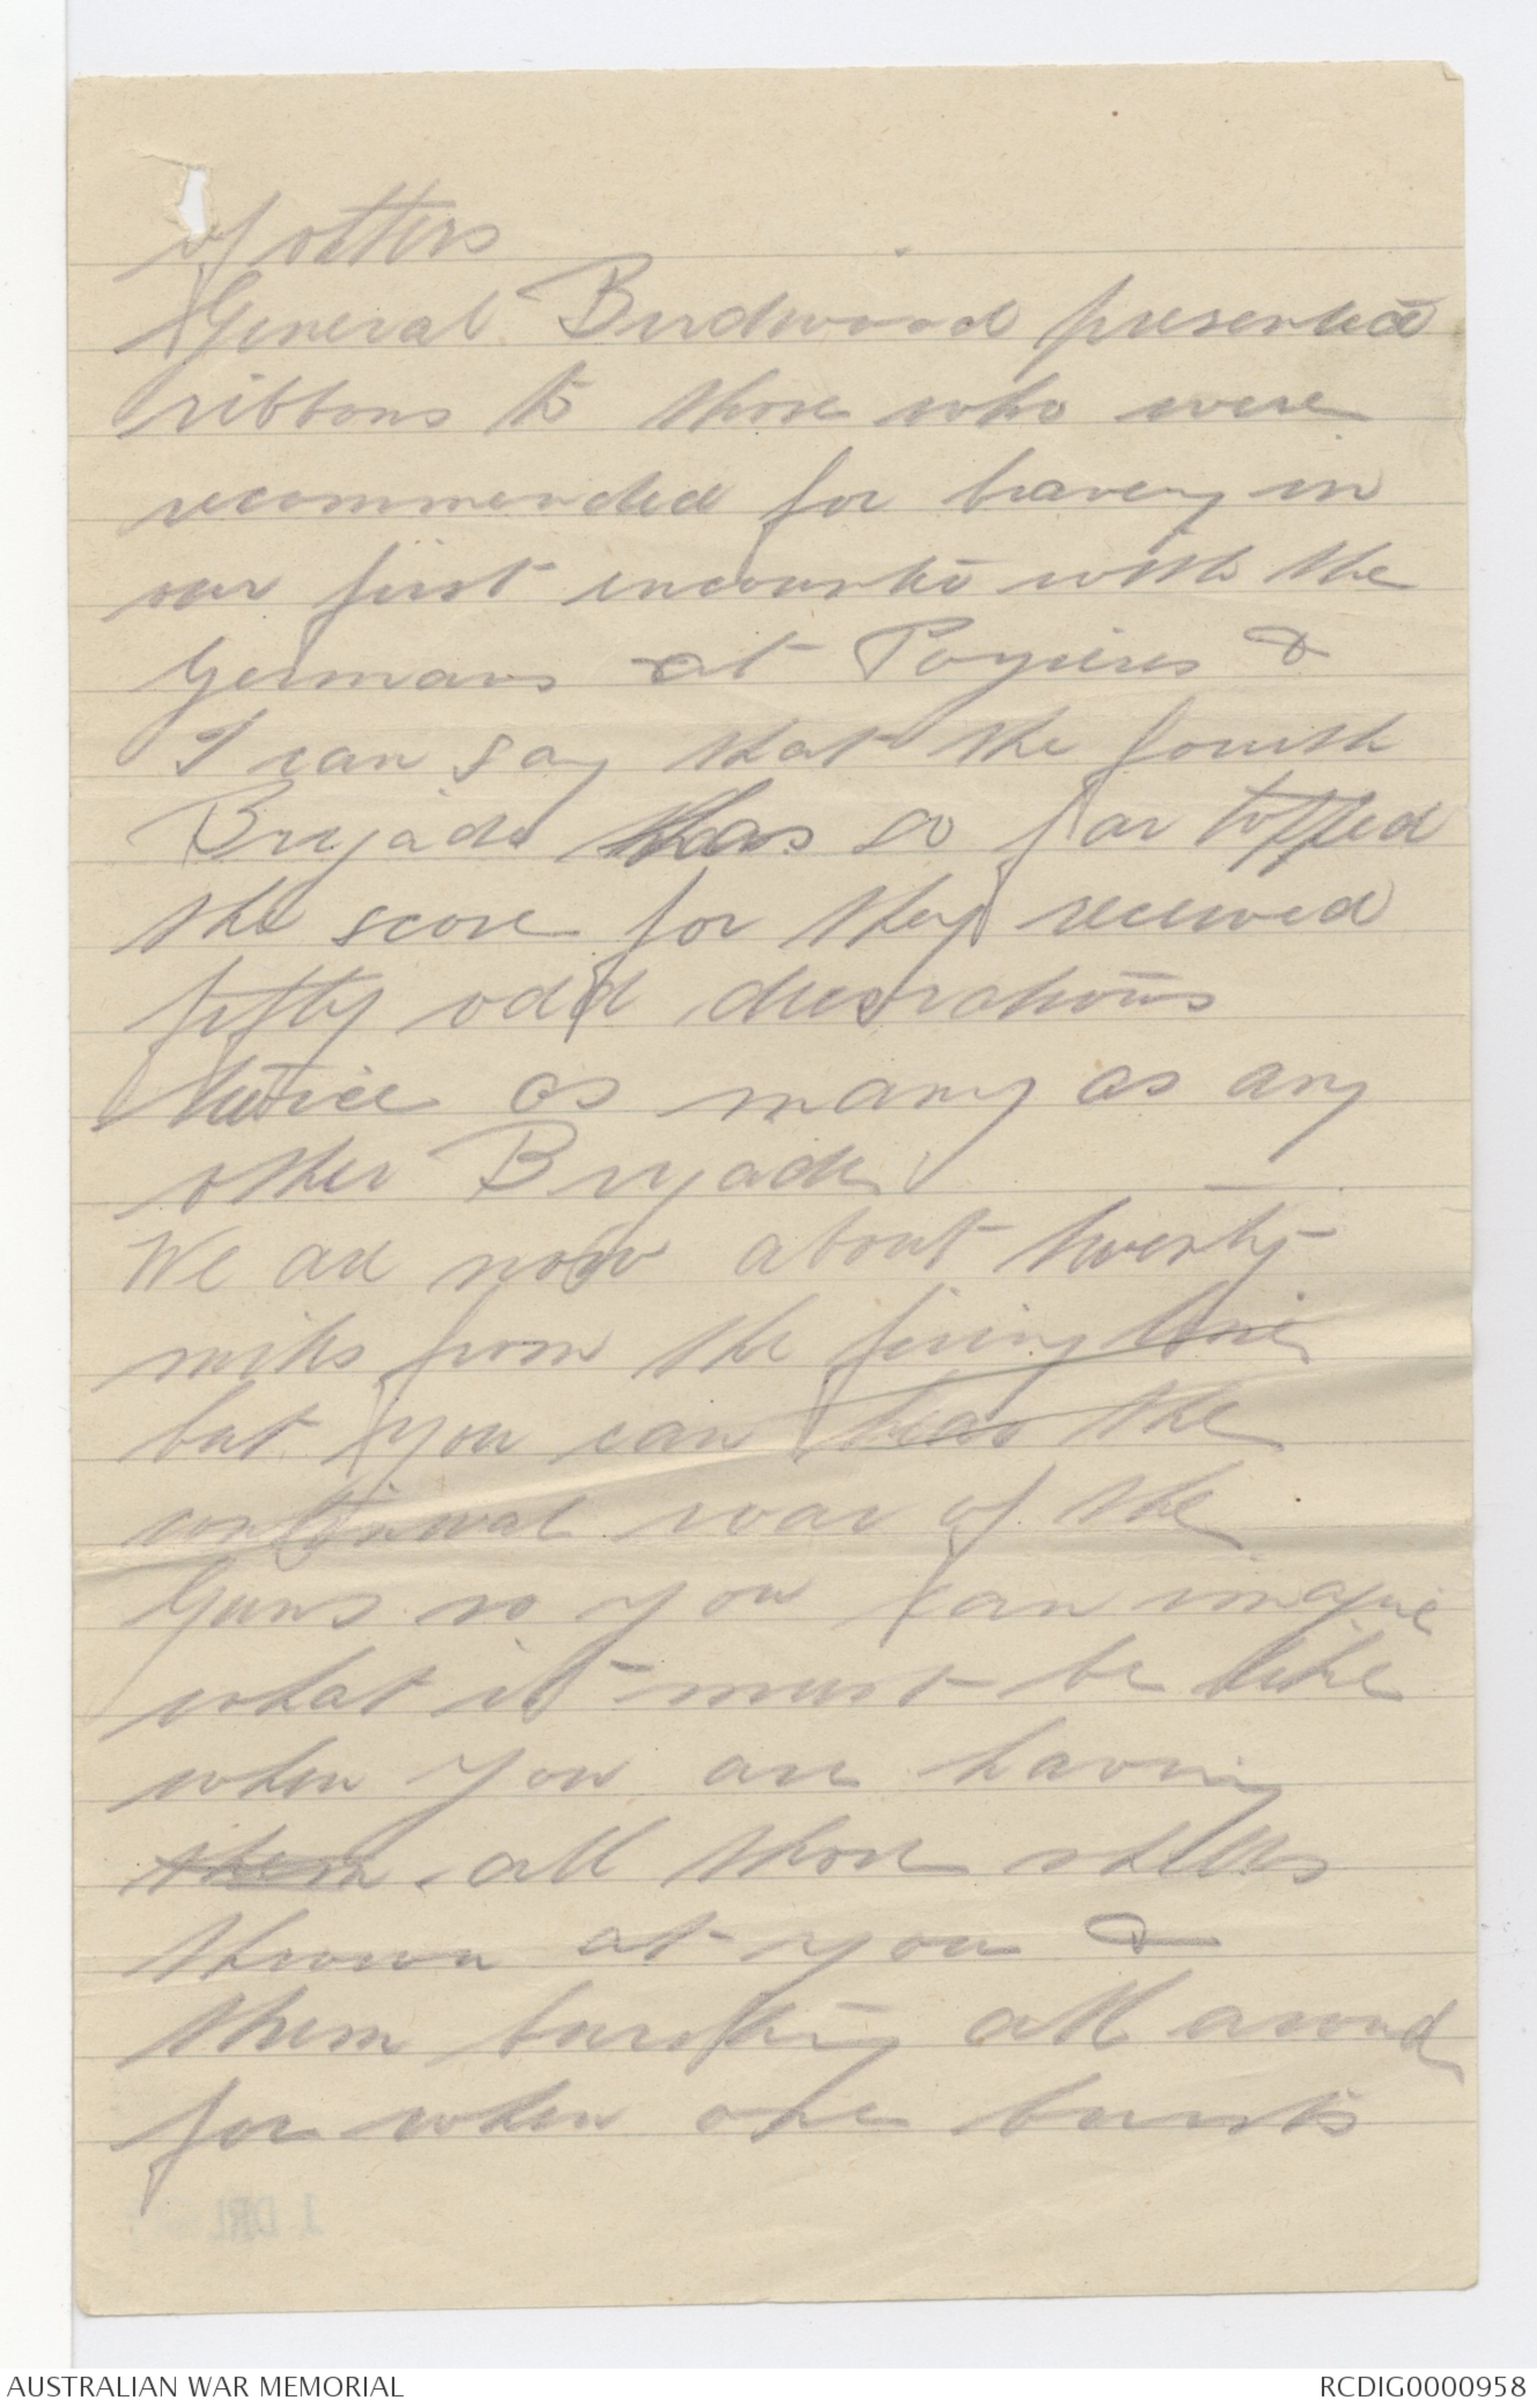 of others
General Birdwood presented
ribbons to those who were
recommended for bravery in
our first encounter with the
Germans at Poziers &
I can say that the fourth
Brigade has so far topped
the score for they received
fifty odd decorations
twice as many as any
other Brigade.
We are now about twenty
miles from the firing line
but you can hear the
continual roar of the
Guns so you can imagine
what it must be like
when you are having
them all those shells
thrown at you &
them bursting all around
for when one bursts
1 DRL
AUSTRALIAN WAR MEMORIAL
RCDIG0000958